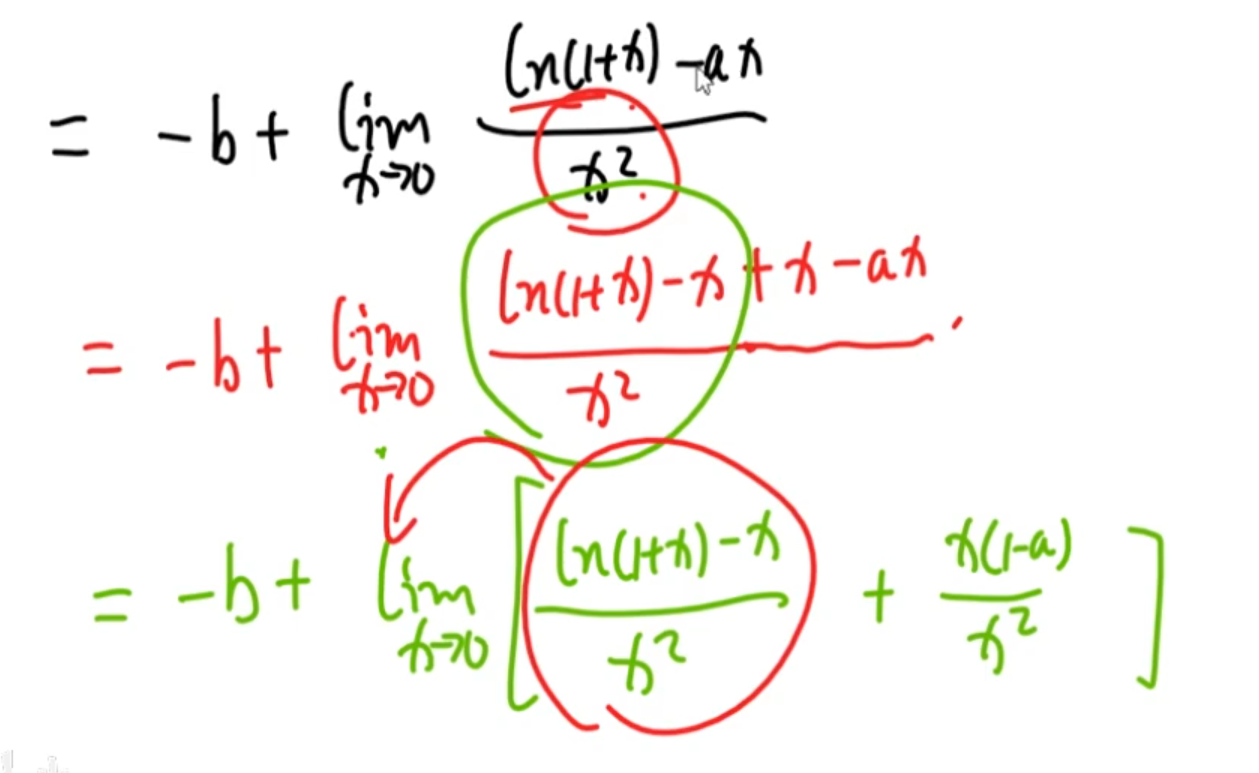 = -b + lim x→0 (ln(1+x) - ax)/x²
= -b + lim x→0 (ln(1+x) - x + x - ax)/x²
= -b + lim x→0 [ (ln(1+x) - x)/x² + x(1-a)/x² ]